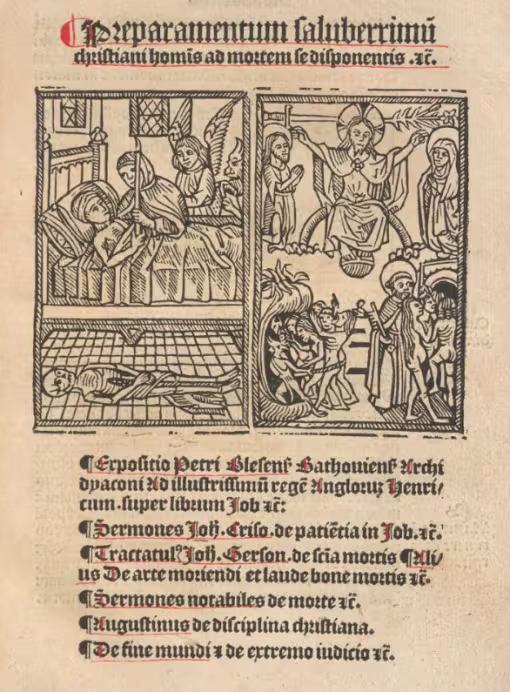 Preparamentum saluberrimū
christiani homīs ad mortem se disponentis .ꝛc̄.
¶ Expositio Petri Blesenẜ Bathonienẜ Archi
dyaconi Ad illustrissimū regē Angloruꝫ Henri/
cum .super librum Job ꝛc̄:
¶ Sermones Joh̄. Criso. de patiētia in Job. ꝛc̄.
¶ Tractatulꝰ Joh̄. Gerson. de sciā mortis ¶ Ali/
us De arte moriendi et laude bone mortis ꝛc̄.
¶ Sermones notabiles de morte ꝛc̄.
¶ Augustinus de disciplina christiana.
¶ De fine mundi ⁊ de extremo iudicio ꝛc̄.